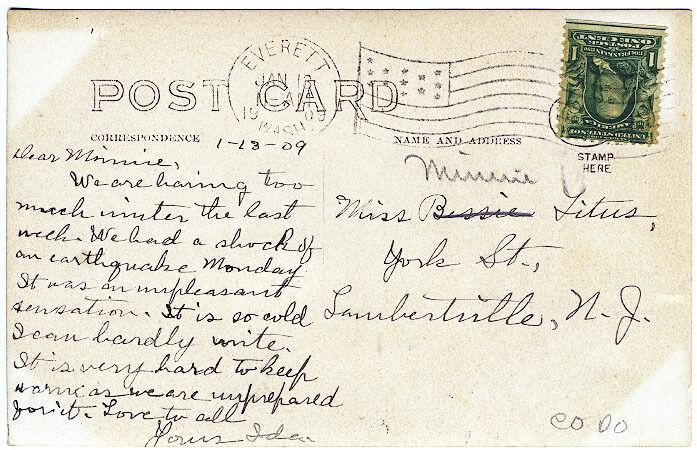 EVERETT
JAN 1
A
1909
WASH.
POST CARD
CORRESPONDENCE
NAME AND ADDRESS
STAMP
HERE
1-13-09
Dear Minnie,
We are having too
much winter the last
week. We had a shock of
an earthquake Monday
It was an unpleasant
sensation. It is so cold
I can hardly write.
It is very hard to keep
warm as we are unprepared
for it. Love to all
Yours Ida
Minnie
Miss Bessie Titus,
York St.,
Lambertville, N. J.
UNITED STATES OF
AMERICA
1 1
POSTAGE
ONE CENT
CO DO